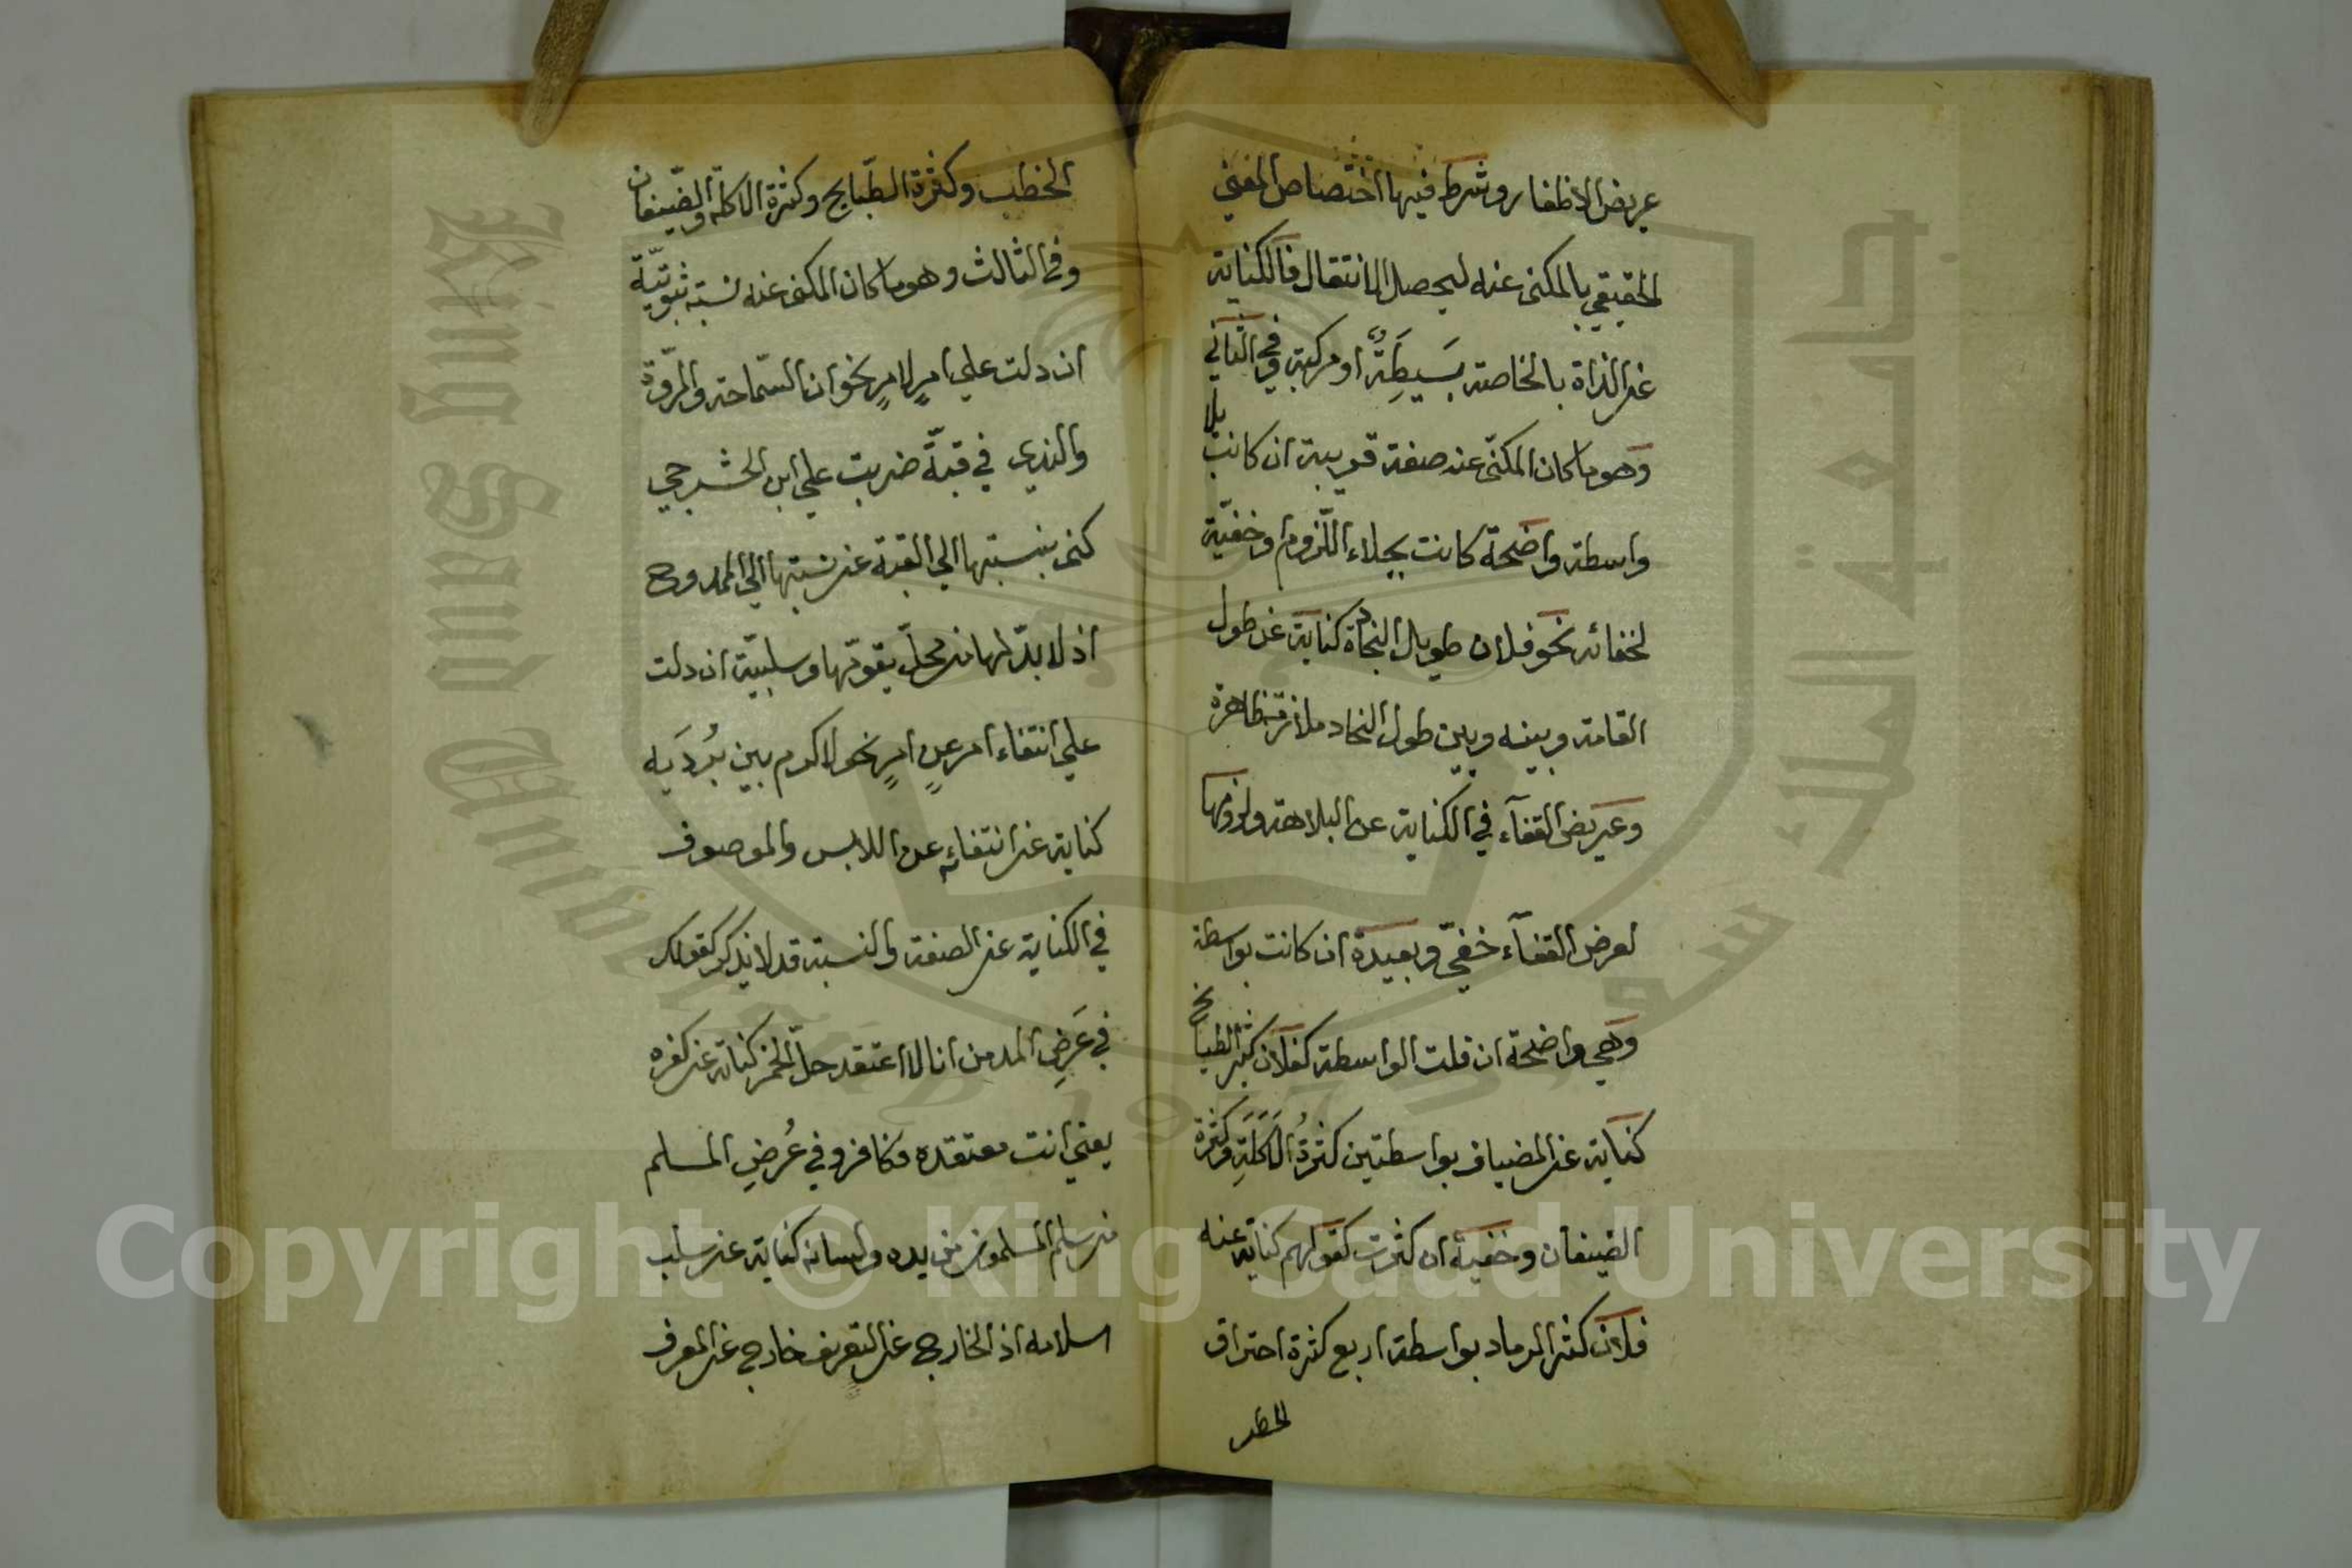 عريض الاظفار وشرط فيها اختصاص المعنى
الحقيقي بالمكنى عنه ليحصل الانتقال فالكناية
عن الذاة بالخاصة بَسِيطَةٌ او مركبة وفي الثاني
وهو ما كان المكنّى عنه صفة قريبة ان كانت بلا
واسطة واضحة كانت بجلاء اللّزوم او خفيّة
لخفائه نحو فلان طويل النجاد كناية عن طول
القامة وبينه وبين طول النجاد ملازمة ظاهرة
وعريض القفآء في الكناية عن البلاهة ولزومها
لعرض القفآء خفيّ وبعيدة ان كانت بواسطة
وهي واضحة ان قلت الواسطة كفلان كثير الطبايخ
كناية عن المضياف بواسطتين كثرةُ الاَكَلَةِ وكثرة
الضيفان وخفية ان كثرت كقولهم كناية عنه
فلان كثير الرماد بواسطة اربع كثرة احتراق
الحطب
الحطب وكثرة الطبّايخ وكثرة الاكلة والضّيفان
وفي الثالث وهو ما كان المكنى عنه نسبة ثبوتيّة
ان دلت علي امرٍ لامرٍ نحو ان السّماحة والمروّة
والندي في قبّة ضربت علي ابن الحشرجي
كنى بنسبتها الي القبة عن نسبتها الي الممدوح
اذ لا بدّ لها من محلّ يقوّمها وسلبيّة ان دلت
علي انتفاء امر عن امرٍ نحو لا كرم بين بُردَيه
كناية عن انتفائه عن اللابس والموصوف
في الكناية عن الصفة والنسبة قد لا يذكر كقولك
في عَرَضِ المدمن انا لا اعتقد حلّ الخمر كناية عن كفره
يعني انت معتقده وكافر وفي عُرضِ المسلم
من سلم المسلمون من يده ولسانه كناية عن سلب
اسلامه اذ الخارج عن التعريف خارج عن المعرف
Copyright © King Saud University
King Saud University
جامعة الملك سعود
1957